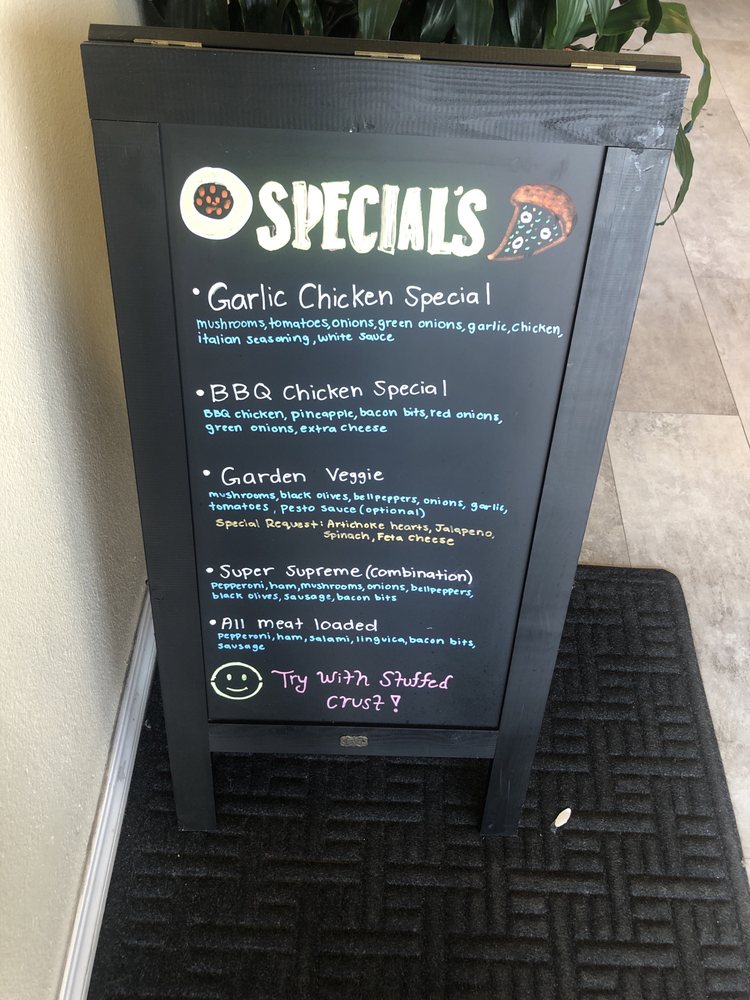 SPECIAL'S
• Garlic Chicken Special
mushrooms, tomatoes, onions, green onions, garlic, chicken,
italian seasoning, white sauce
• BBQ Chicken Special
BBQ chicken, pineapple, bacon bits, red onions,
green onions, extra cheese
• Garden Veggie
mushrooms, black olives, bellpeppers, onions, garlic,
tomatoes, pesto sauce (optional)
Special Request: Artichoke hearts, Jalapeno,
Spinach, Feta cheese
• Super Supreme (combination)
Pepperoni, ham, mushrooms, onions, bellpeppers,
black olives, sausage, bacon bits
• All meat loaded
Pepperoni, ham, salami, linguica, bacon bits,
sausage
Try with Stuffed
crust!